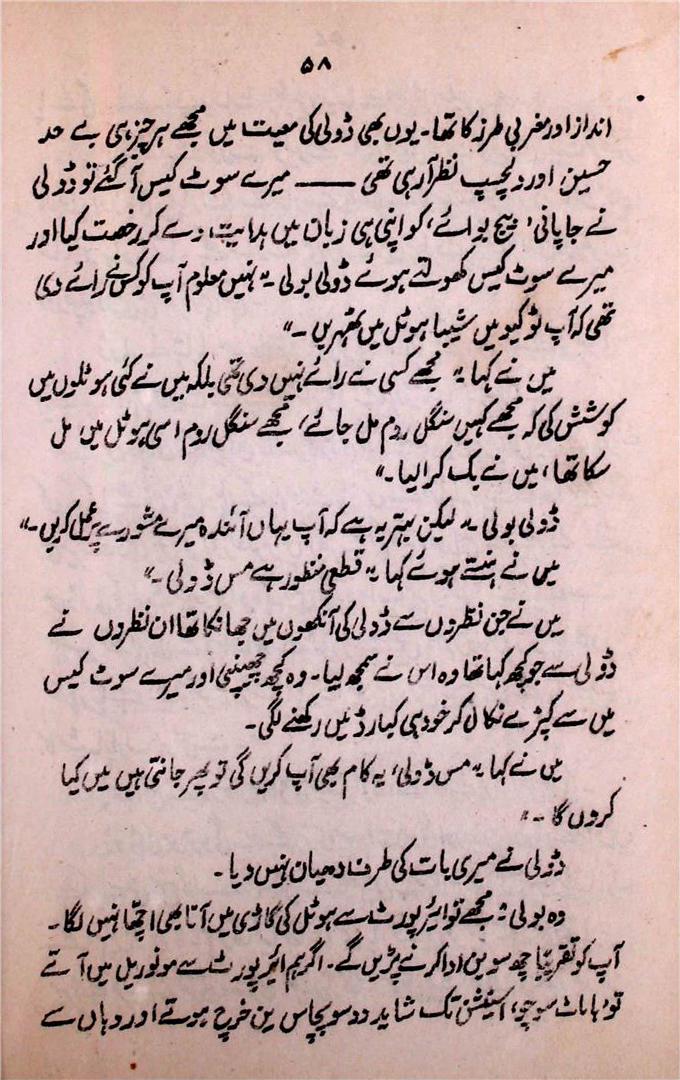 ۵۸
انداز اور مغربی طرز کا تھا۔ یوں بھی ڈولی کی معیت میں مجھے ہر چیز ہی بے حد
حسین اور دلچسپ نظر آ رہی تھی ——— میرے سوٹ کیس آ گئے تو ڈولی
نے جاپانی ’پیج بوائے‘ کو اپنی ہی زبان میں ہدایت دے کر رخصت کیا اور
میرے سوٹ کیس کھولتے ہوئے ڈولی بولی ۔ ”نہیں معلوم آپ کو کس نے رائے دی
تھی کہ آپ ٹوکیو میں شیبا ہوٹل میں ٹھہریں ۔“
میں نے کہا ”مجھے کسی نے رائے نہیں دی تھی بلکہ میں نے کئی ہوٹلوں میں
کوشش کی کہ مجھے کہیں سنگل روم مل جائے، مجھے سنگل روم اسی ہوٹل میں مل
سکا تھا، میں نے بک کرا لیا ۔“
ڈولی بولی ۔ ”لیکن بہتر یہ ہے کہ آپ یہاں آئندہ میرے مشورے پر عمل کریں ۔“
میں نے ہنستے ہوئے کہا ”قطعی منظور ہے مس ڈولی ۔“
میں نے جن نظروں سے ڈولی کی آنکھوں میں جھانکا تھا ان نظروں نے
ڈولی سے جو کچھ کہا تھا وہ اس نے سمجھ لیا ۔ وہ کچھ جھینپی اور میرے سوٹ کیس
میں سے کپڑے نکال کر خود ہی کبارڈ میں رکھنے لگی ۔
میں نے کہا ”مس ڈولی، یہ کام بھی آپ کریں گی تو پھر جانتی ہیں میں کیا
کروں گا ۔“
ڈولی نے میری بات کی طرف دھیان نہیں دیا ۔
وہ بولی ”مجھے تو ایئرپورٹ سے ہوٹل کی گاڑی میں آنا بھی اچھا نہیں لگا ۔
آپ کو تقریباً چھ سو ین ادا کرنے پڑیں گے ۔ اگر ہم ایئرپورٹ سے مونوریل میں آتے
تو ’ہاماٹ سوچو‘ اسٹیشن تک شاید دو سو پچاس ین خرچ ہوتے اور وہاں سے